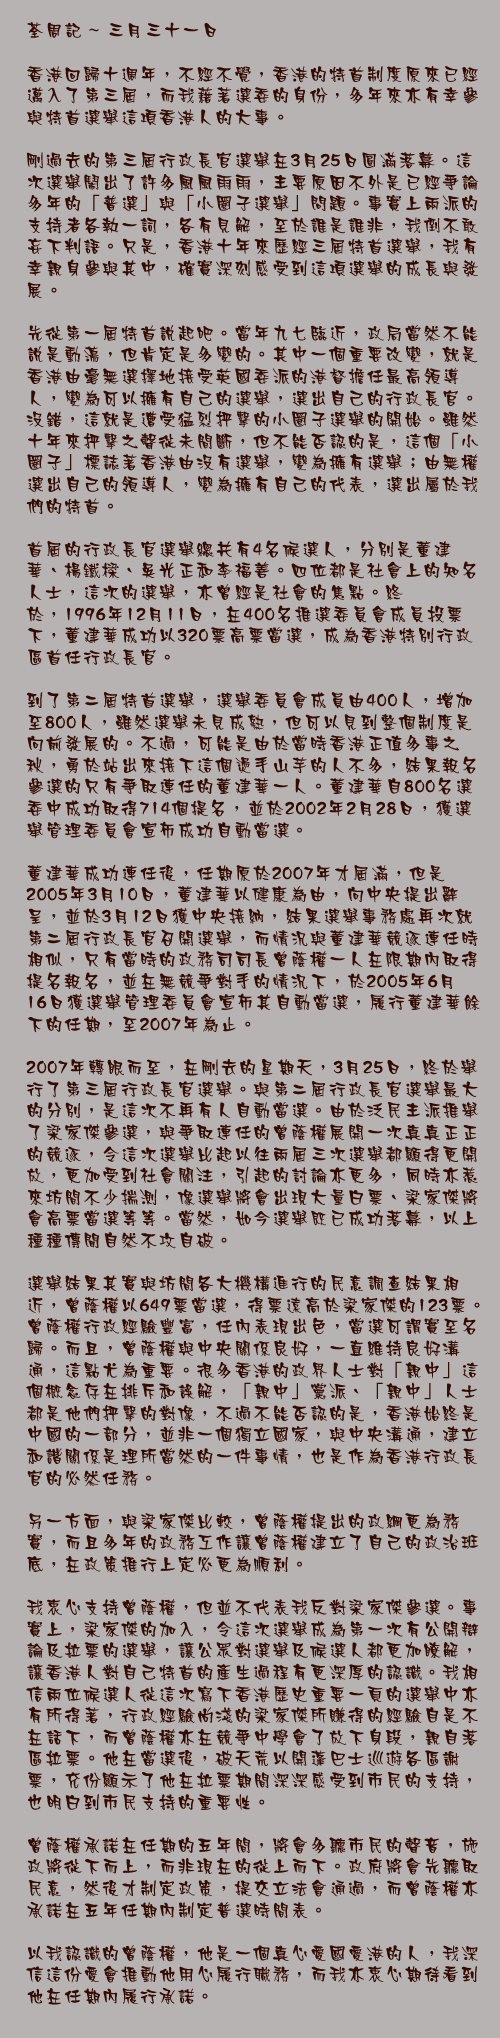 荃周記 ~ 三月三十一日
香港回歸十週年，不經不覺，香港的特首制度原來已經
邁入了第三屆，而我藉著選委的身份，多年來亦有幸參
與特首選舉這項香港人的大事。
剛過去的第三屆行政長官選舉在3月25日圓滿落幕。這
次選舉鬧出了許多風風雨雨，主要原因不外是已經爭論
多年的「普選」與「小圈子選舉」問題。事實上兩派的
支持者各執一詞，各有見解，至於誰是誰非，我倒不敢
妄下判語。只是，香港十年來歷經三屆特首選舉，我有
幸親自參與其中，確實深刻感受到這項選舉的成長與發
展。
先從第一屆特首說起吧。當年九七臨近，政局當然不能
說是動蕩，但肯定是多變的。其中一個重要改變，就是
香港由毫無選擇地接受英國委派的港督擔任最高領導
人，變為可以擁有自己的選舉，選出自己的行政長官。
沒錯，這就是遭受猛烈抨擊的小圈子選舉的開始。雖然
十年來抨擊之聲從未間斷，但不能否認的是，這個「小
圈子」標誌著香港由沒有選舉，變為擁有選舉；由無權
選出自己的領導人，變為擁有自己的代表，選出屬於我
們的特首。
首屆的行政長官選舉總共有4名候選人，分別是董建
華、楊鐵樑、吳光正和李福善。四位都是社會上的知名
人士，這次的選舉，亦曾經是社會的焦點。終
於，1996年12月11日，在400名推選委員會成員投票
下，董建華成功以320票高票當選，成為香港特別行政
區首任行政長官。
到了第二屆特首選舉，選舉委員會成員由400人，增加
至800人，雖然選舉未見成熟，但可以見到整個制度是
向前發展的。不過，可能是由於當時香港正值多事之
秋，勇於站出來接下這個燙手山芋的人不多，結果報名
參選的只有爭取連任的董建華一人。董建華自800名選
委中成功取得714個提名，並於2002年2月28日，獲選
舉管理委員會宣布成功自動當選。
董建華成功連任後，任期原於2007年才屆滿，但是
2005年3月10日，董建華以健康為由，向中央提出辭
呈，並於3月12日獲中央接納，結果選舉事務處再次就
第二屆行政長官召開選舉，而情況與董建華競逐連任時
相似，只有當時的政務司司長曾蔭權一人在限期內取得
提名報名，並在無競爭對手的情況下，於2005年6月
16日獲選舉管理委員會宣布其自動當選，履行董建華餘
下的任期，至2007年為止。
2007年轉眼而至，在剛去的星期天，3月25日，終於舉
行了第三屆行政長官選舉。與第二屆行政長官選舉最大
的分別，是這次不再有人自動當選。由於泛民主派推舉
了梁家傑參選，與爭取連任的曾蔭權展開一次真真正正
的競逐，令這次選舉比起以往兩屆三次選舉都顯得更開
放，更加受到社會關注，引起的討論亦更多，同時亦惹
來坊間不少揣測，像選舉將會出現大量白票、梁家傑將
會高票當選等等。當然，如今選舉既已成功落幕，以上
種種傳聞自然不攻自破。
選舉結果其實與坊間各大機構進行的民意調查結果相
近，曾蔭權以649票當選，得票遠高於梁家傑的123票。
曾蔭權行政經驗豐富，任內表現出色，當選可謂實至名
歸。而且，曾蔭權與中央關係良好，一直維持良好溝
通，這點尤為重要。很多香港的政界人士對「親中」這
個概念存在排斥和誤解，「親中」黨派、「親中」人士
都是他們抨擊的對像，不過不能否認的是，香港始終是
中國的一部分，並非一個獨立國家，與中央溝通，建立
和諧關係是理所當然的一件事情，也是作為香港行政長
官的必然任務。
另一方面，與梁家傑比較，曾蔭權提出的政綱更為務
實，而且多年的政務工作讓曾蔭權建立了自己的政治班
底，在政策推行上定必更為順利。
我衷心支持曾蔭權，但並不代表我反對梁家傑參選。事
實上，梁家傑的加入，令這次選舉成為第一次有公開辯
論及拉票的選舉，讓公眾對選舉及候選人都更加瞭解，
讓香港人對自己特首的產生過程有更深厚的認識。我相
信兩位候選人從這次寫下香港歷史重要一頁的選舉中亦
有所得著，行政經驗尚淺的梁家傑所賺得的經驗自是不
在話下，而曾蔭權亦在競爭中學會了放下身段，親自落
區拉票。他在當選後，破天荒以開蓬巴士巡遊各區謝
票，充份顯示了他在拉票期間深深感受到市民的支持，
也明白到市民支持的重要性。
曾蔭權承諾在任期的五年間，將會多聽市民的聲音，施
政將從下而上，而非現在的從上而下。政府將會先聽取
民意，然後才制定政策，提交立法會通過，而曾蔭權亦
承諾在五年任期內制定普選時間表。
以我認識的曾蔭權，他是一個真心愛國愛港的人，我深
信這份愛會推動他用心履行職務，而我亦衷心期待看到
他在任期內履行承諾。